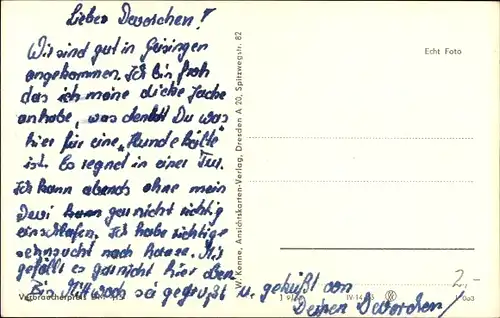 Lieber Deworchen!
Wir sind gut in Geisingen
angekommen. Ich bin froh
das ich meine dicke Jacke
anhabe, was denkst Du was
hier für eine „Hundekälte"
ist. Es regnet in einer Tur.
Ich kann abends ohne mein
Dewi kann garnicht richtig
einschlafen. Ich habe richtige
sehnsucht nach hause. Mir
gefällt es garnicht hier oben.
Bis Mittwoch sei gegrüßt u. geküßt von
Deinen Deworchen!
W. Kenne, Ansichtskarten-Verlag, Dresden A 20, Spitzwegstr. 82
Echt Foto
Verbraucherpreis
2,-